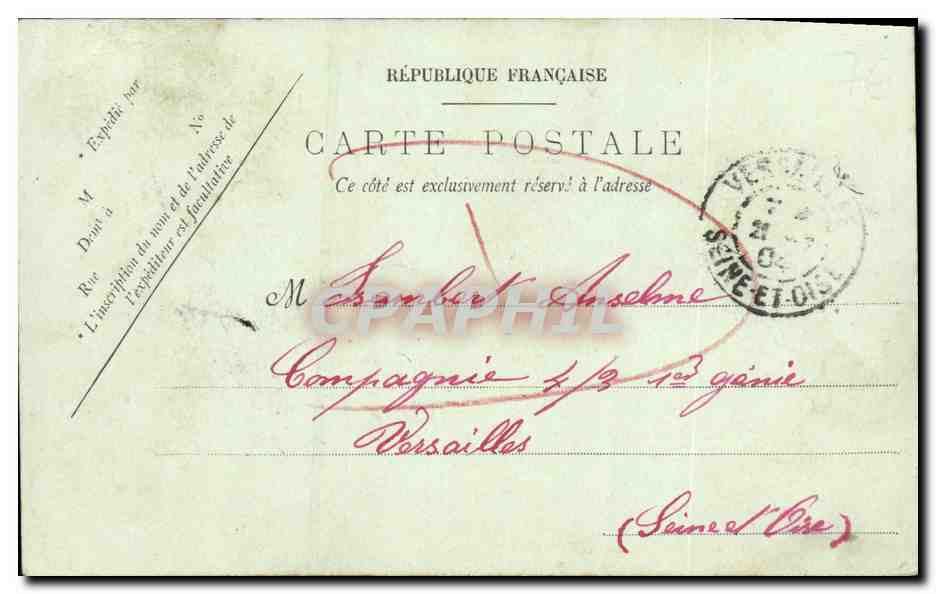 RÉPUBLIQUE FRANÇAISE
CARTE POSTALE
Ce côté est exclusivement réservé à l'adresse
* Expédié par
M
Demt à
Rue No
* L'inscription du nom et de l'adresse de
l'expéditeur est facultative
VERSAILLES
21
04
SEINE-ET-OISE
M Lambert Anselme
Compagnie 4/3 1er génie
Versailles
(Seine et Oise)
CPAPHIL